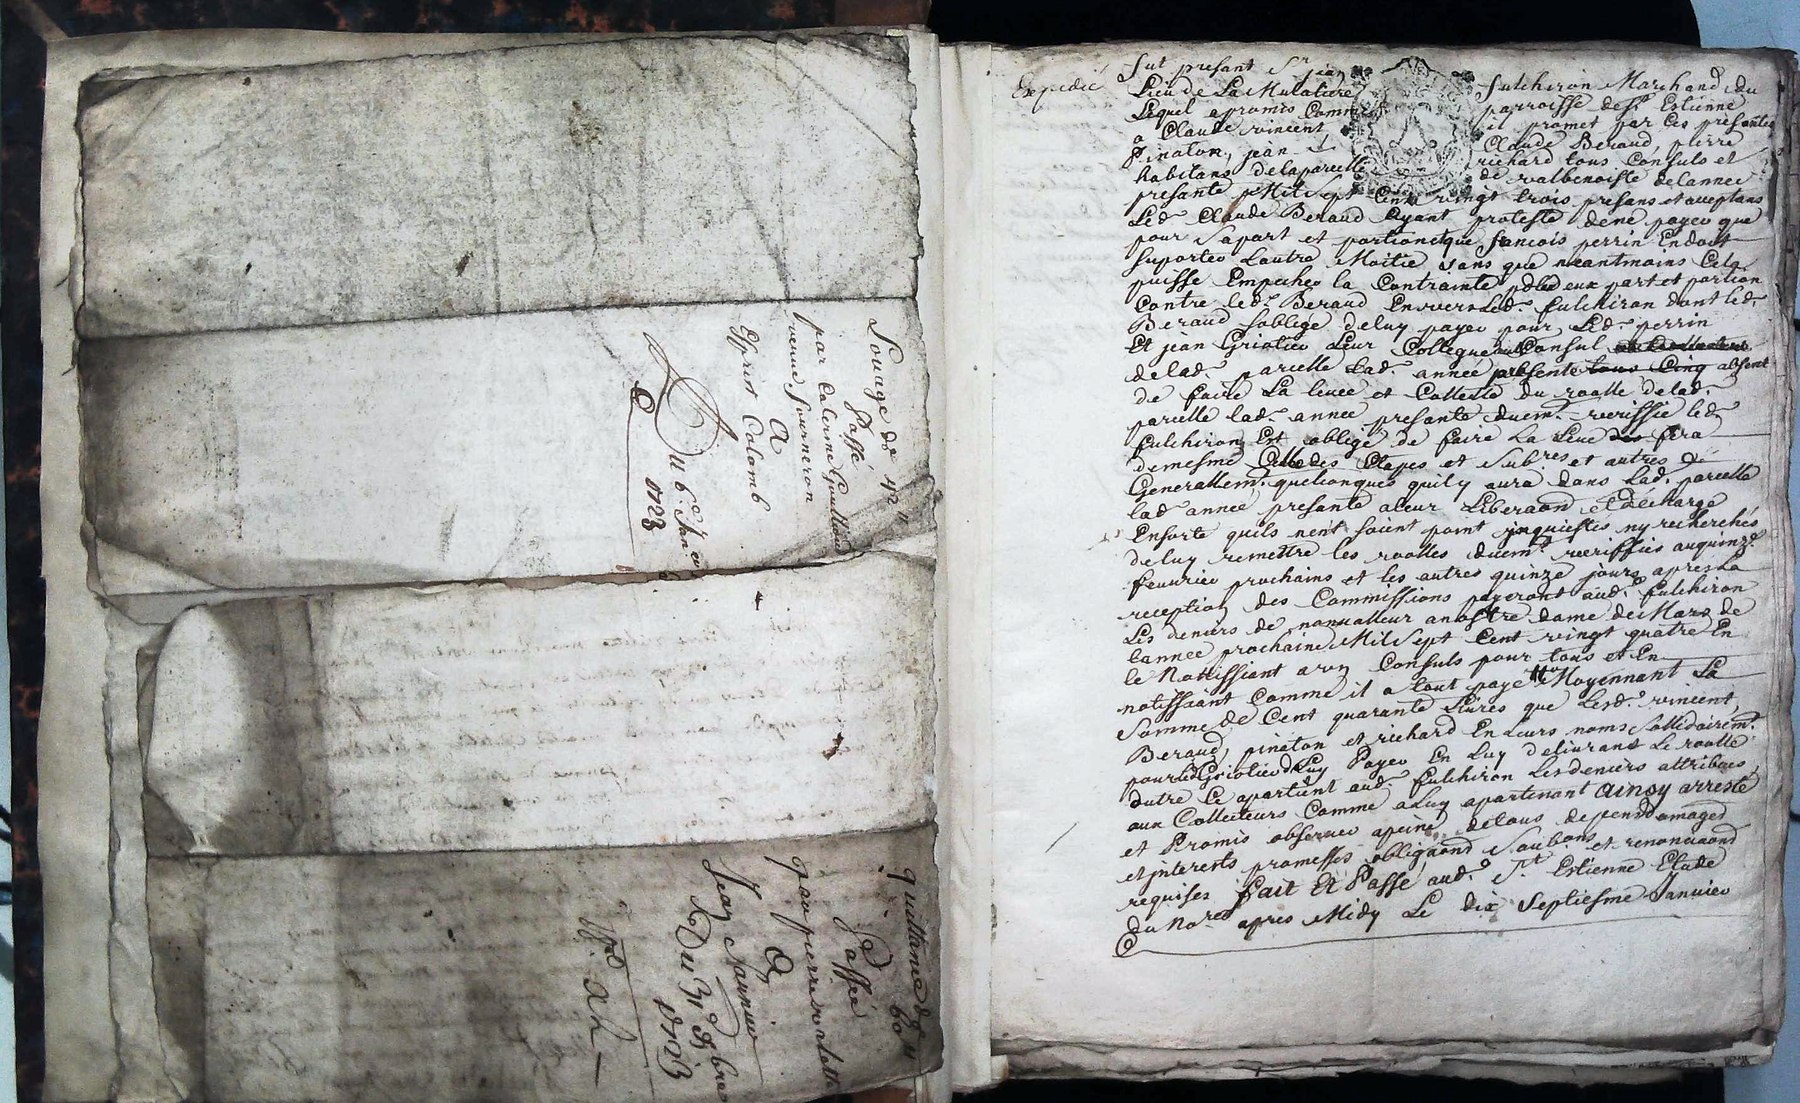 Louage de 42 ll
Passé
par Caterine
veuve fourneron
A
Esprit Colomb
Du 6e Janer
1723
quittance de
60 ll
Passée
par pierre
A
Jean
Du 31e 8bre
1713
Expedié
fut present Sr jan fulchiron Marchand du
Lieu de La Mulatiere parroisse de St Estienne
Lequel a promis Comme il promet par Ces presentes
a Claude vincent Claude Beraud, pierre
pinaton, jean richard tous Consuls et
habitans de la parcelle de valbenoiste de lannee
presante Mil Sept Cent vingt trois presans et aceptans
Led. Claude Beraud Ayant protesté de ne payer que
pour Sa part et portion et que francois perrin En doit
Suporter Lautre Moitié sans que neantmoins Cela
puisse Empecher la Contrainte pour deux part et portion
Contre led. Beraud Envers Led. fulchiron dont led.
Beraud soblige de luy payer pour Led. perrin
Et jean Griotier Leur Collegue Consul
de lad. parcelle Lad. année presente tous Cinq absent
de faire La levee et Collecte du roolle de lad.
parcelle lad. annee presante duem. veriffie led.
fulchiron Est obligé de faire La Leve fera
de mesme Celle des Etapes et Subres et autres
Generallemt. quelconques quil y aura dans Lad. parcelle
lad. année presante a leur Liberaon et decharge
Ensorte quils nent soient point inquiettés ny recherchés
de luy remettre les roolles duemt. veriffiés au quinze
fevurier prochains et les autres quinze jours apres La
reception des Commissions payeront aud. fulchiron
Les deniers de nonvalleur a nostre dame de Mars de
lannee prochaine Mil Sept Cent vingt quatre En
le Nottiffiant a un Consuls pour tous et En
notiffiant Comme il a tout payé Moyennant La
Somme de Cent quarante Livres que Lesd. vincent
Beraud, pinaton et richard En Leurs noms Sollidairemt.
pour led Griotier Luy Payer En Luy delivrant Le roolle
outre Ce apartient aud. fulchiron Les deniers attribués
aux Collecteurs Comme a Luy apartenant ainsy arresté
et Promis observer a peine de tous depens domages
et interests promesses obligaons Soubons et renonciaons
requises fait Et Passé aud. St. Estienne Etude
du Nore. apres Midy Le dix Septiesme Janvier